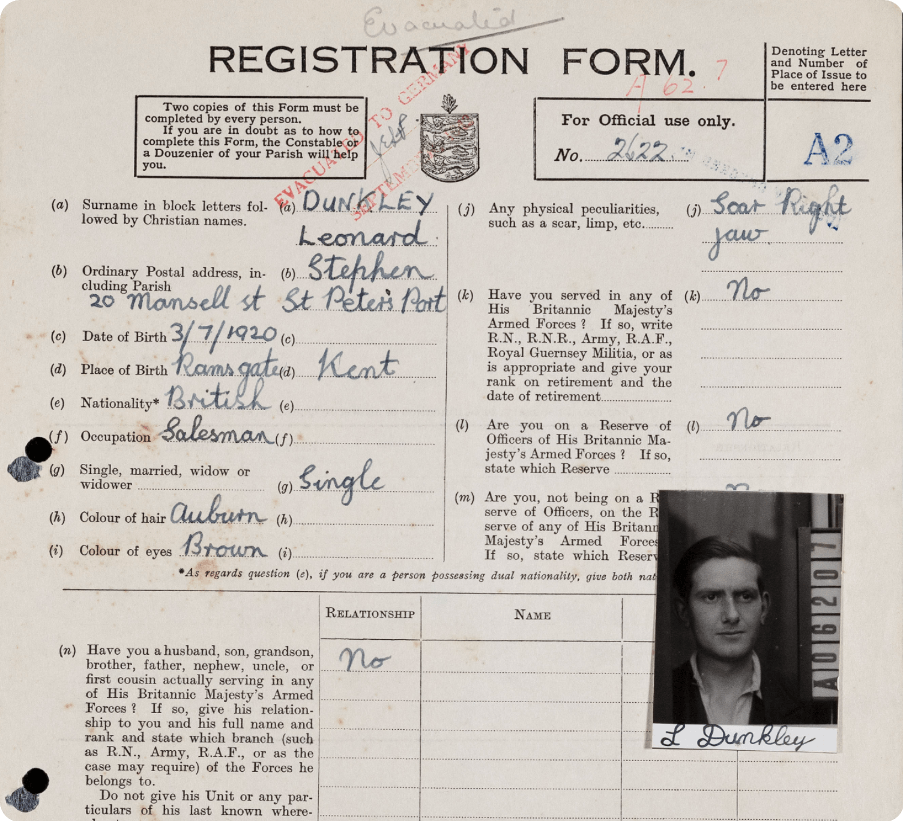 Evacuated
REGISTRATION FORM.
A 62. 7
Denoting Letter
and Number of
Place of Issue to
be entered here
A2
Two copies of this Form must be
completed by every person.
If you are in doubt as to how to
complete this Form, the Constable or
a Douzenier of your Parish will help
you.
EVACUATED TO GERMANY
SEPTEMBER
For Official use only.
No. 2622
(a) Surname in block letters fol- (a) DUNKLEY
lowed by Christian names.
Leonard
Stephen
(b) Ordinary Postal address, in- (b)
cluding Parish
20 Mansell st St Peter's Port
(c) Date of Birth 3/7/1920 (c)
(d) Place of Birth Ramsgate (d) Kent
(e) Nationality* British (e)
(f) Occupation Salesman (f)
(g) Single, married, widow or
widower (g) Single
(h) Colour of hair Auburn (h)
(i) Colour of eyes Brown (i)
(j) Any physical peculiarities, (j) Scar Right
such as a scar, limp, etc. jaw
(k) Have you served in any of (k) No
His Britannic Majesty's
Armed Forces ? If so, write
R.N., R.N.R., Army, R.A.F.,
Royal Guernsey Militia, or as
is appropriate and give your
rank on retirement and the
date of retirement
(l) Are you on a Reserve of (l) No
Officers of His Britannic Ma-
jesty's Armed Forces ? If so,
state which Reserve
(m) Are you, not being on a R
serve of Officers, on the R
serve of any of His Britann
Majesty's Armed Forces
If so, state which Reserv
*As regards question (e), if you are a person possessing dual nationality, give both nat
RELATIONSHIP NAME
(n) Have you a husband, son, grandson, No
brother, father, nephew, uncle, or
first cousin actually serving in any
of His Britannic Majesty's Armed
Forces ? If so, give his relation-
ship to you and his full name and
rank and state which branch (such
as R.N., Army, R.A.F., or as the
case may require) of the Forces he
belongs to.
Do not give his Unit or any par-
ticulars of his last known where-
A06207
L Dunkley